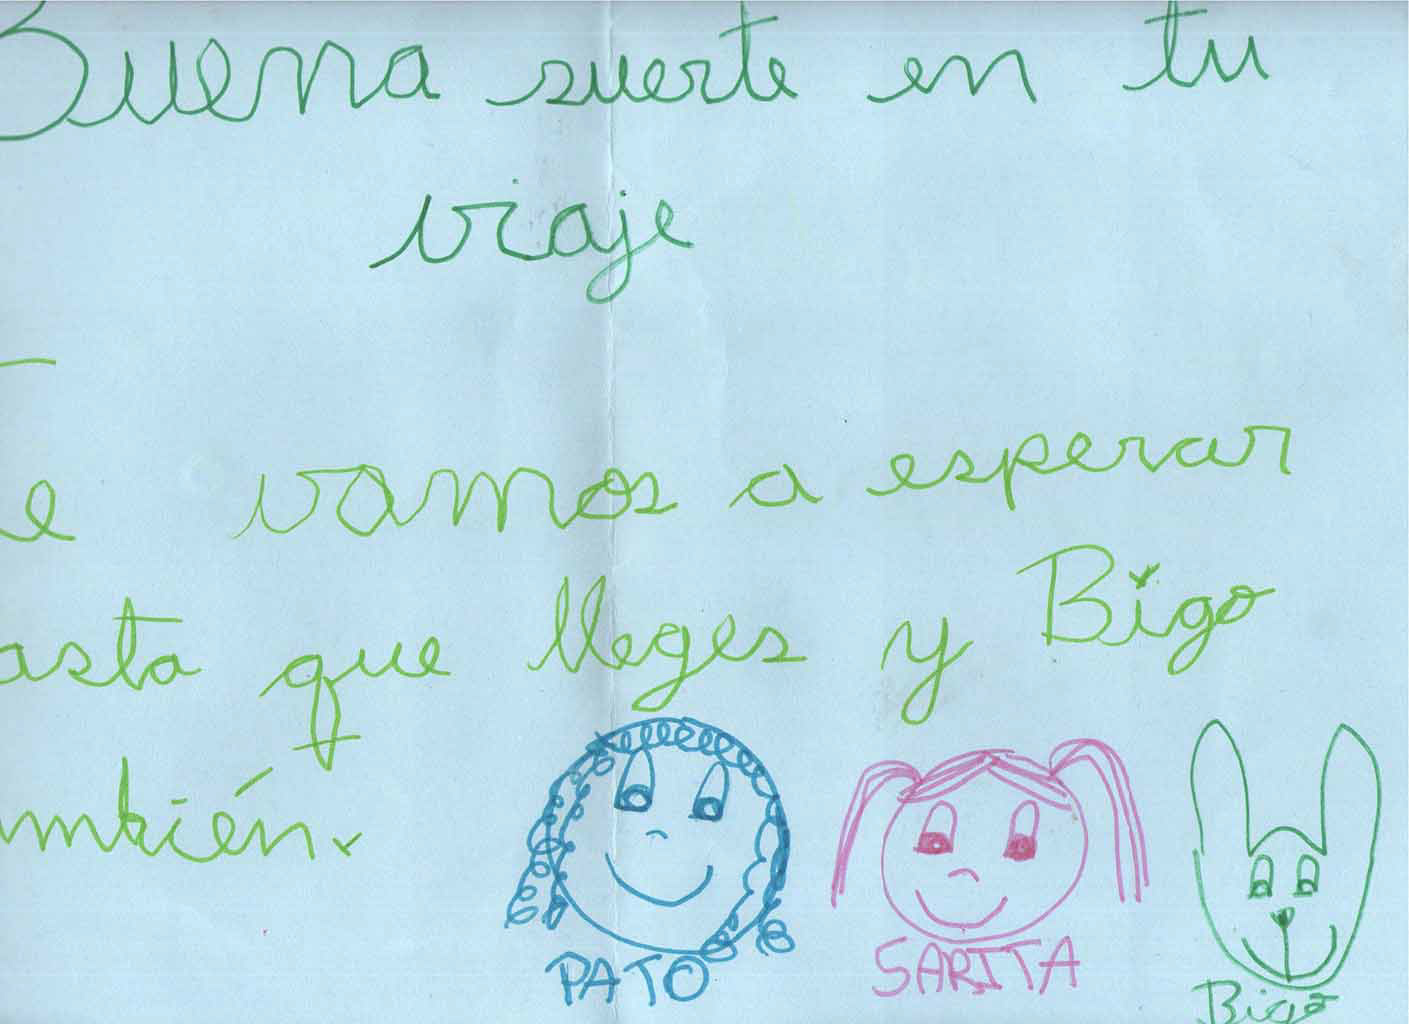 Buena suerte en tu
viaje
Te vamos a esperar
asta que lleges y Bigo
ambién.
PATO SARITA Bigo